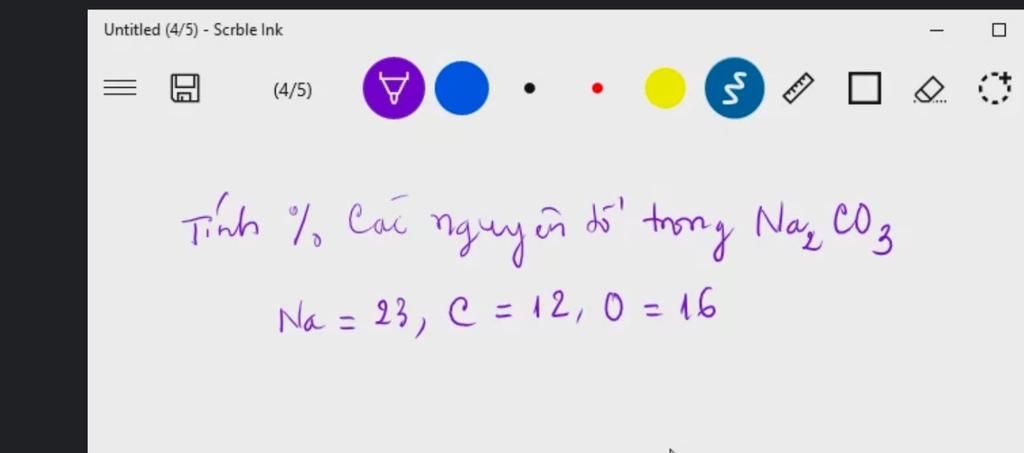 Untitled (4/5) - Scrble Ink
(4/5)
Tính % các nguyên tố trong Na₂CO₃
Na = 23, C = 12, O = 16